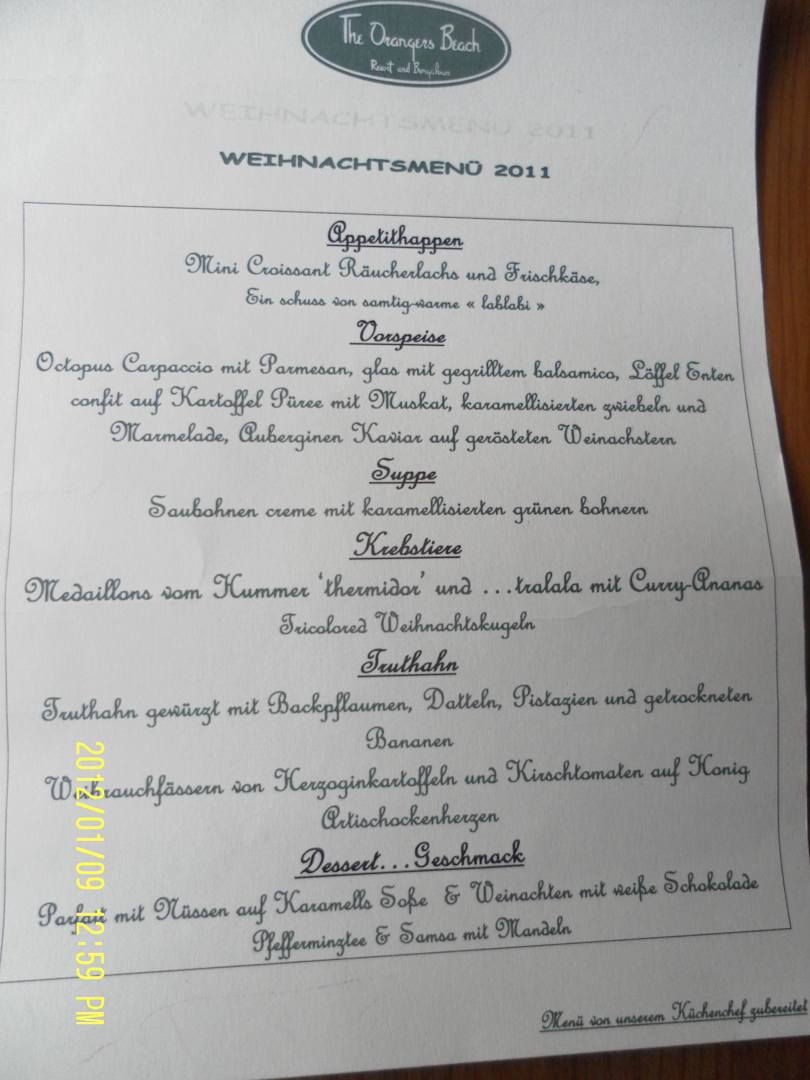 The Orangers Beach
Resort and Bungalows
WEIHNACHTSMENÜ 2011
WEIHNACHTSMENÜ 2011
Appetithappen
Mini Croissant Räucherlachs und Frischkäse,
Ein schuss von samtig-warme « lablabi »
Vorspeise
Octopus Carpaccio mit Parmesan, glas mit gegrilltem balsamico, Löffel Enten
confit auf Kartoffel Püree mit Muskat, karamellisierten zwiebeln und
Marmelade, Auberginen Kaviar auf gerösteten Weinachstern
Suppe
Saubohnen creme mit karamellisierten grünen bohnern
Krebstiere
Medaillons vom Hummer 'thermidor' und ...tralala mit Curry-Ananas
Tricolored Weihnachtskugeln
Truthahn
Truthahn gewürzt mit Backpflaumen, Datteln, Pistazien und getrockneten
Bananen
Weihrauchfässern von Herzoginkartoffeln und Kirschtomaten auf Honig
Artischockenherzen
Dessert...Geschmack
Parfait mit Nüssen auf Karamells Soße & Weinachten mit weiße Schokolade
Pfefferminztee & Samsa mit Mandeln
Menü von unserem Küchenchef zubereitet
2012/01/09 12:59 PM